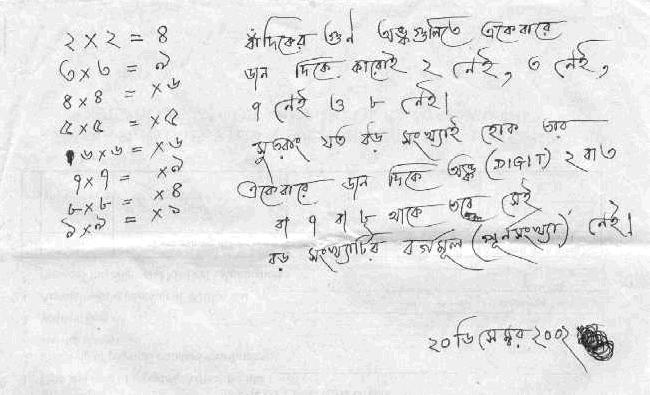 ২ × ২ = ৪
৩ × ৩ = ৯
৪ × ৪ = ×৬
৫ × ৫ = ×৫
৬ × ৬ = ×৬
৭ × ৭ = ×৯
৮ × ৮ = ×৪
৯ × ৯ = ×১
বাঁদিকের গুন অঙ্কগুলিতে একেবারে
ডান দিকে কারোই ২ নেই, ৩ নেই,
৭ নেই ও ৮ নেই।
সুতরাং যত বড় সংখ্যাই হোক তার
একেবারে ডান দিকে অঙ্ক (DIGIT) ২ বা ৩
বা ৭ বা ৮ থাকে তবে সেই
বড় সংখ্যাটির বর্গমূল (পূর্নসংখ্যা) নেই।
২০ ডিসেম্বর ২০০২